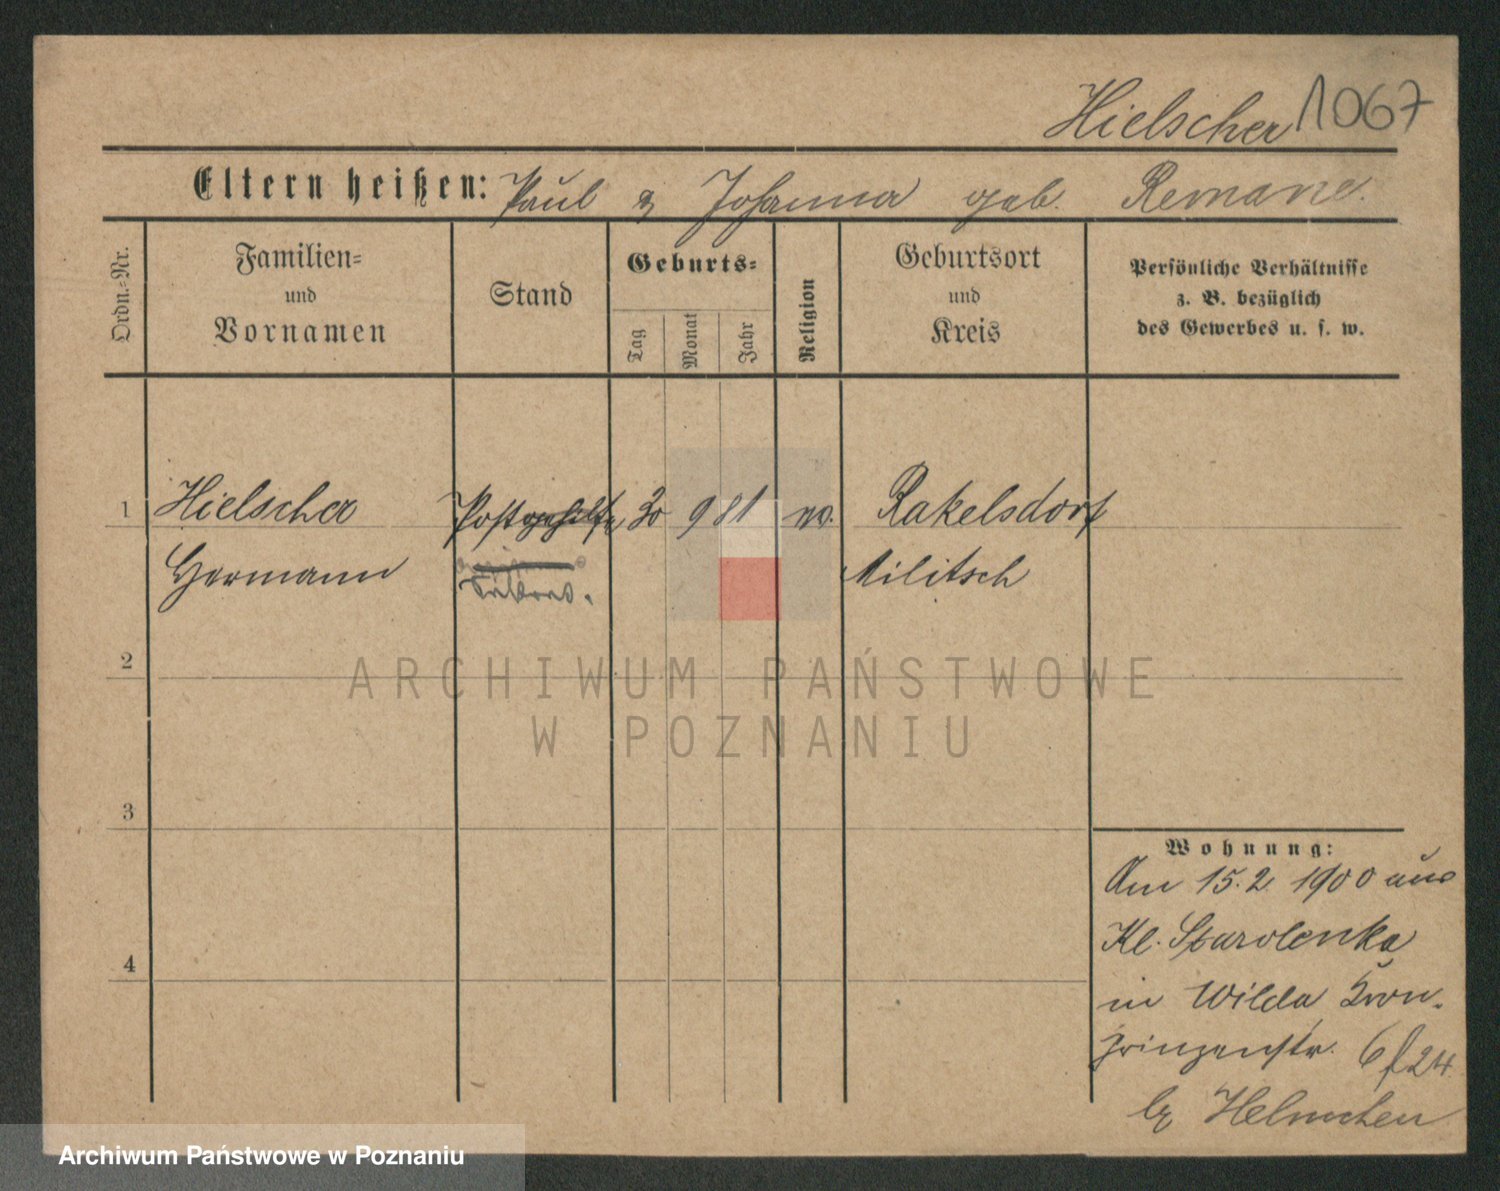 Hielscher 1067
Eltern heißen: Paul & Johanna geb. Remane.
Ordn.=Nr.
Familien=
und
Vornamen
Stand
Geburts=
Tag
Monat
Jahr
Religion
Geburtsort
und
Kreis
Persönliche Verhältnisse
z. B. bezüglich
des Gewerbes u. s. w.
1 Hielscher Postgehilfe 30 9 81 ev. Rakelsdorf
Hermann Militsch
2
3
4
Wohnung:
Am 15.2. 1900 aus
Kl. Starolenka
in Wilda Kron-
prinzenstr. 6/24
bei Helmchen
ARCHIWUM PAŃSTWOWE
W POZNANIU
Archiwum Państwowe w Poznaniu